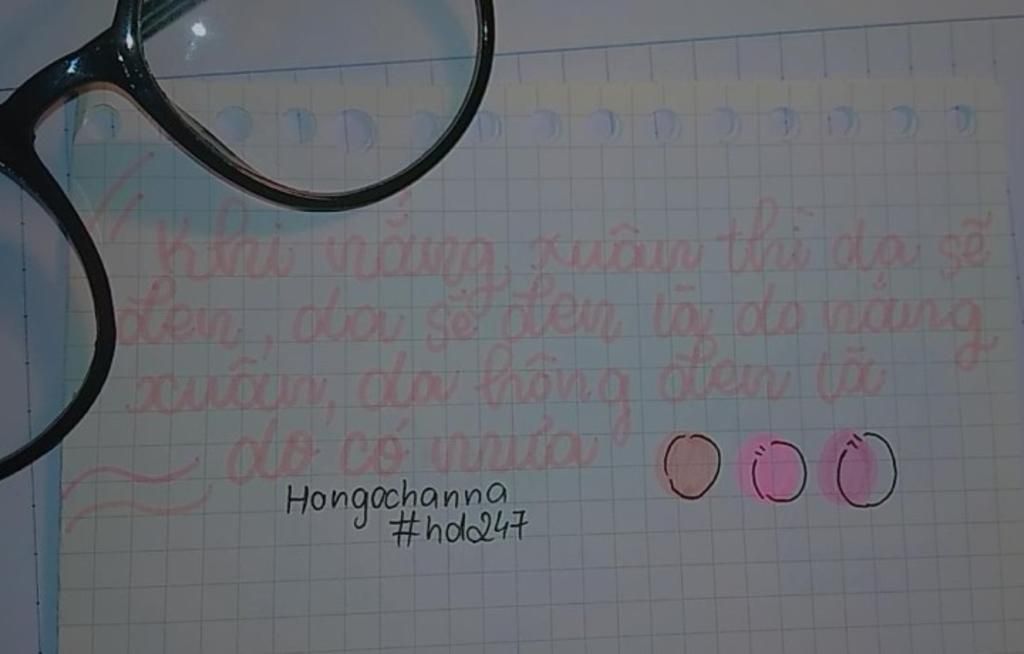 Khi nắng xuân thì da sẽ
đen, da sẽ đen là do nắng
xuân, da hông đen là
do có mưa
Hongochanna
#hda247